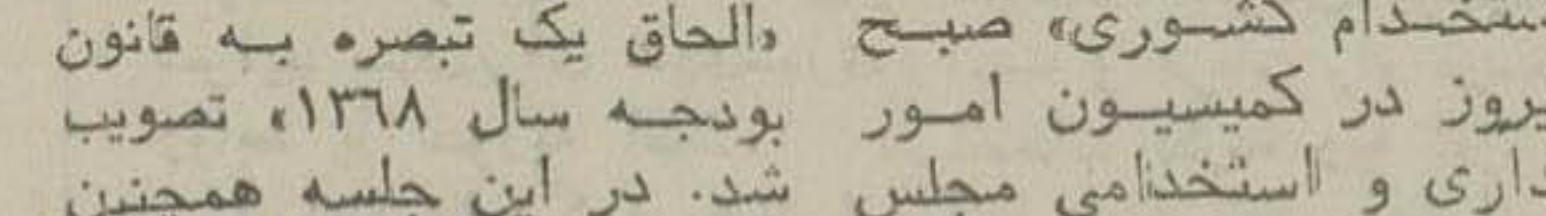 استخدام کشوری» صبح
یروز در کمیسیون امور
داری و استخدامی مجلس
«الحاق یک تبصره به قانون
بودجه سال ۱۳۶۸» تصویب
شد. در این جلسه همچنین